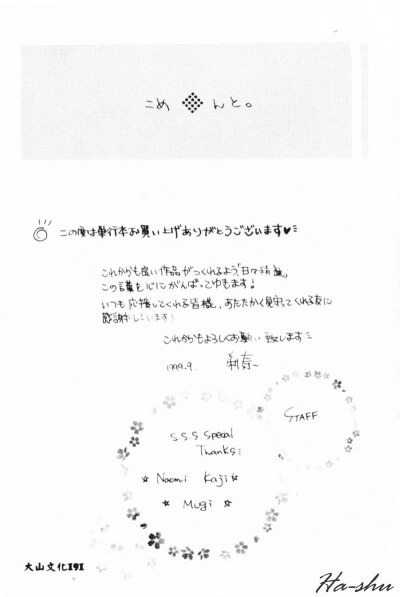 こめ んと。
この度は単行本お買い上げありがとうございます♥
これからも良い作品がつくれるよう「日々精進」
この言葉を心にがんばってゆきます!
いつも応援してくれる皆様、あたたかく見守ってくれる友に
感謝しています!
これからもよろしくお願い致します
1999.9.
STAFF
S.S.S. Special
Thanks:
☆ Naomi Kaji ☆
☆ Mugi ☆
大山文化191
Ha-shu